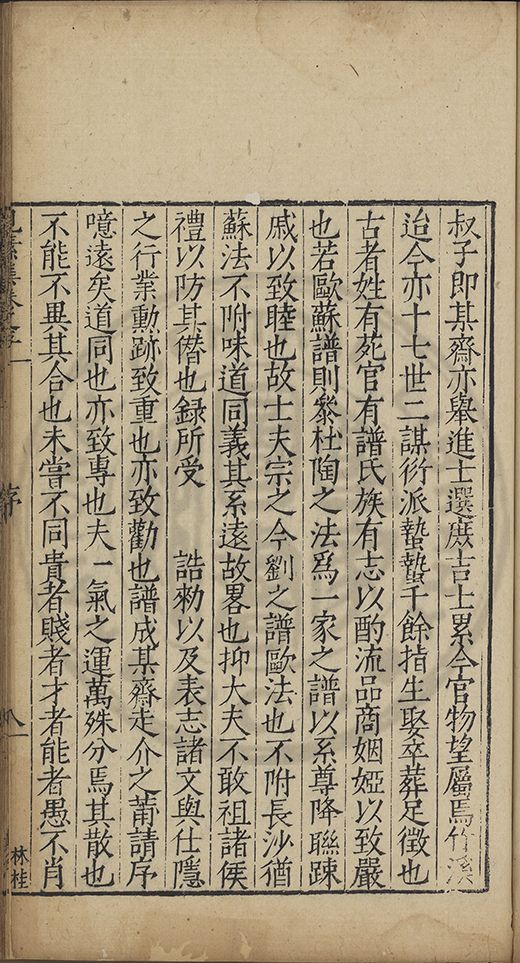 叔子即某齋亦舉進士選庶吉士累今官物望屬焉竹溪
迨今亦十七世二謀衍派蟄蟄千餘指生娶卒葬足徵也
古者姓有苑官有譜氏族有志以酌流品商姻婭以致嚴
也若歐蘇譜則叅杜陶之法爲一家之譜以系尊降聯踈
戚以致睦也故士夫宗之今劉之譜歐法也不附長沙猶
蘇法不附味道同義其系遠故畧也抑大夫不敢祖諸侯
禮以防其僭也録所受　誥勑以及表志諸文與仕隱
之行業勳跡致重也亦致勸也譜成某齋走介之莆請序
噫遠矣道同也亦致專也夫一氣之運萬殊分焉其散也
不能不異其合也未嘗不同貴者賤者才者能者愚不肖
序
林桂